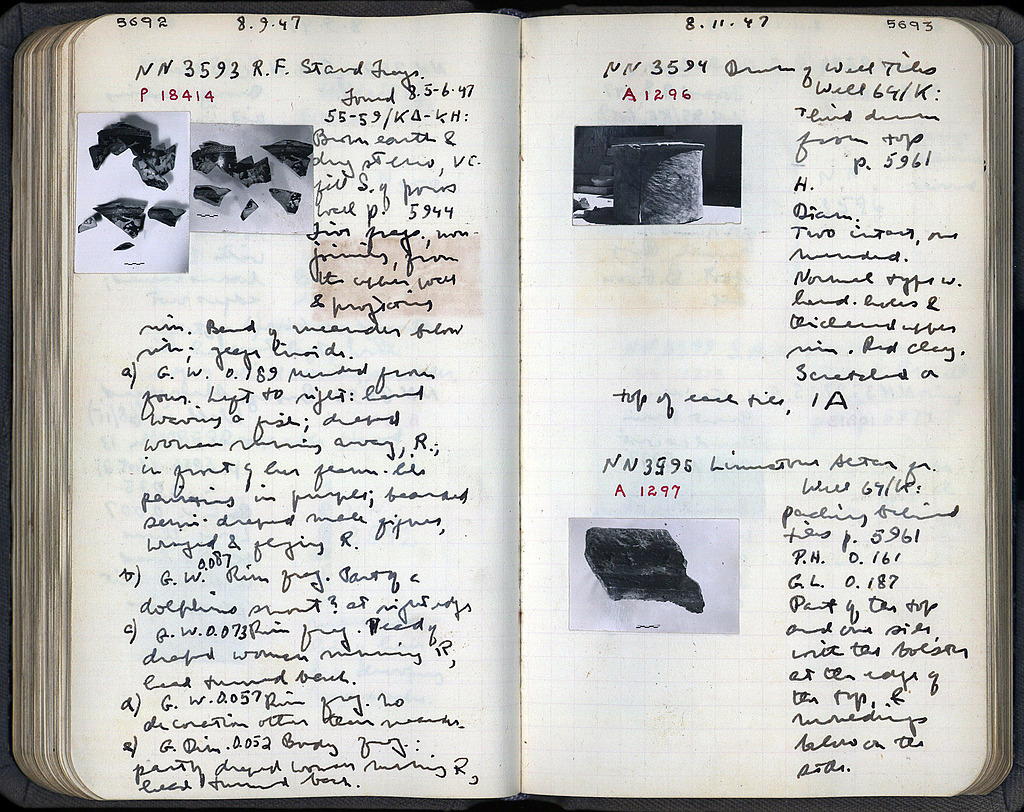 5692 8.9.47
NN 3593 R.F. Stand frags.
P 18414
Found 8.5-6.47
55-59/ΚΔ-ΚΗ:
Brown earth &
dug stereo, VC.
fill S. of poros
wall p. 5944
Five frags., non-
joining, from
the upper part
& projecting
rim. Band of meander below
rim;
a) G.W. 0.189 Mended from
four. Left to right: hand
waving a fish; draped
woman running away, R.;
in front of her
in purple; bearded
semi-draped male figure,
winged & flying R.
b) G.W. 0.087 Rim frag. Part of a
dolphins snout? at right edge
c) G.W. 0.073 Rim frag. Head of
draped woman running R,
head turned back.
d) G.W. 0.057 Rim frag. no
decoration other than meander.
e) G. Dim. 0.052 Body frag.:
partly draped woman running R,
head turned back.
8.11.47 5693
NN 3594 Drum of Well Tiles
A 1296
Well 64/Κ:
Third drum
from top
p. 5961
H.
Diam.
Two intact, one
mended.
Normal type w.
hand-holes &
thickened upper
rim. Red clay.
Scratched on
top of each tile, 1A
NN 3595 Limestone Altar fr.
A 1297
Well 64/Κ:
packing behind
tiles p. 5961
P.H. 0.161
G.L. 0.187
Part of the top
and one side,
with the bolster
at the edge of
the top, &
mouldings
below on the
side.